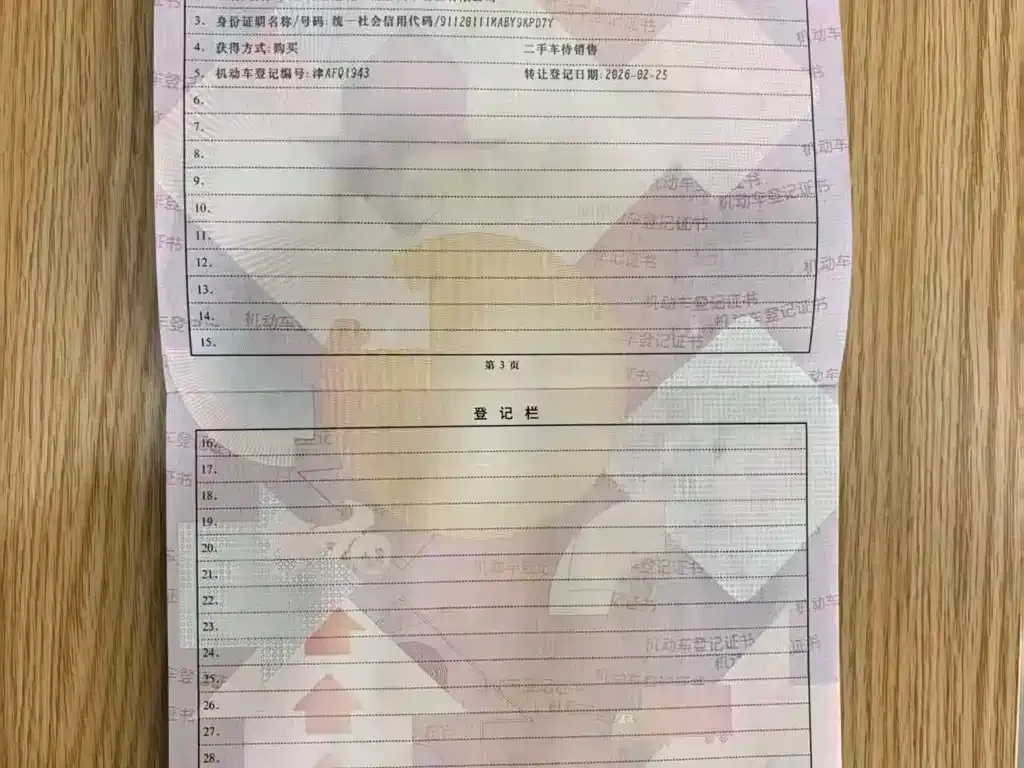 3. 身份证明名称/号码 统一社会信用代码/91120111MABY9KPD7Y
4. 获得方式:购买 二手车待销售
5. 机动车登记编号:津AFQ1943 转让登记日期:2026-02-25
6.
7.
8.
9.
10.
11.
12.
13.
14.
15.
第 3 页
登 记 栏
16.
17.
18.
19.
20.
21.
22.
23.
24.
25.
26.
27.
28.